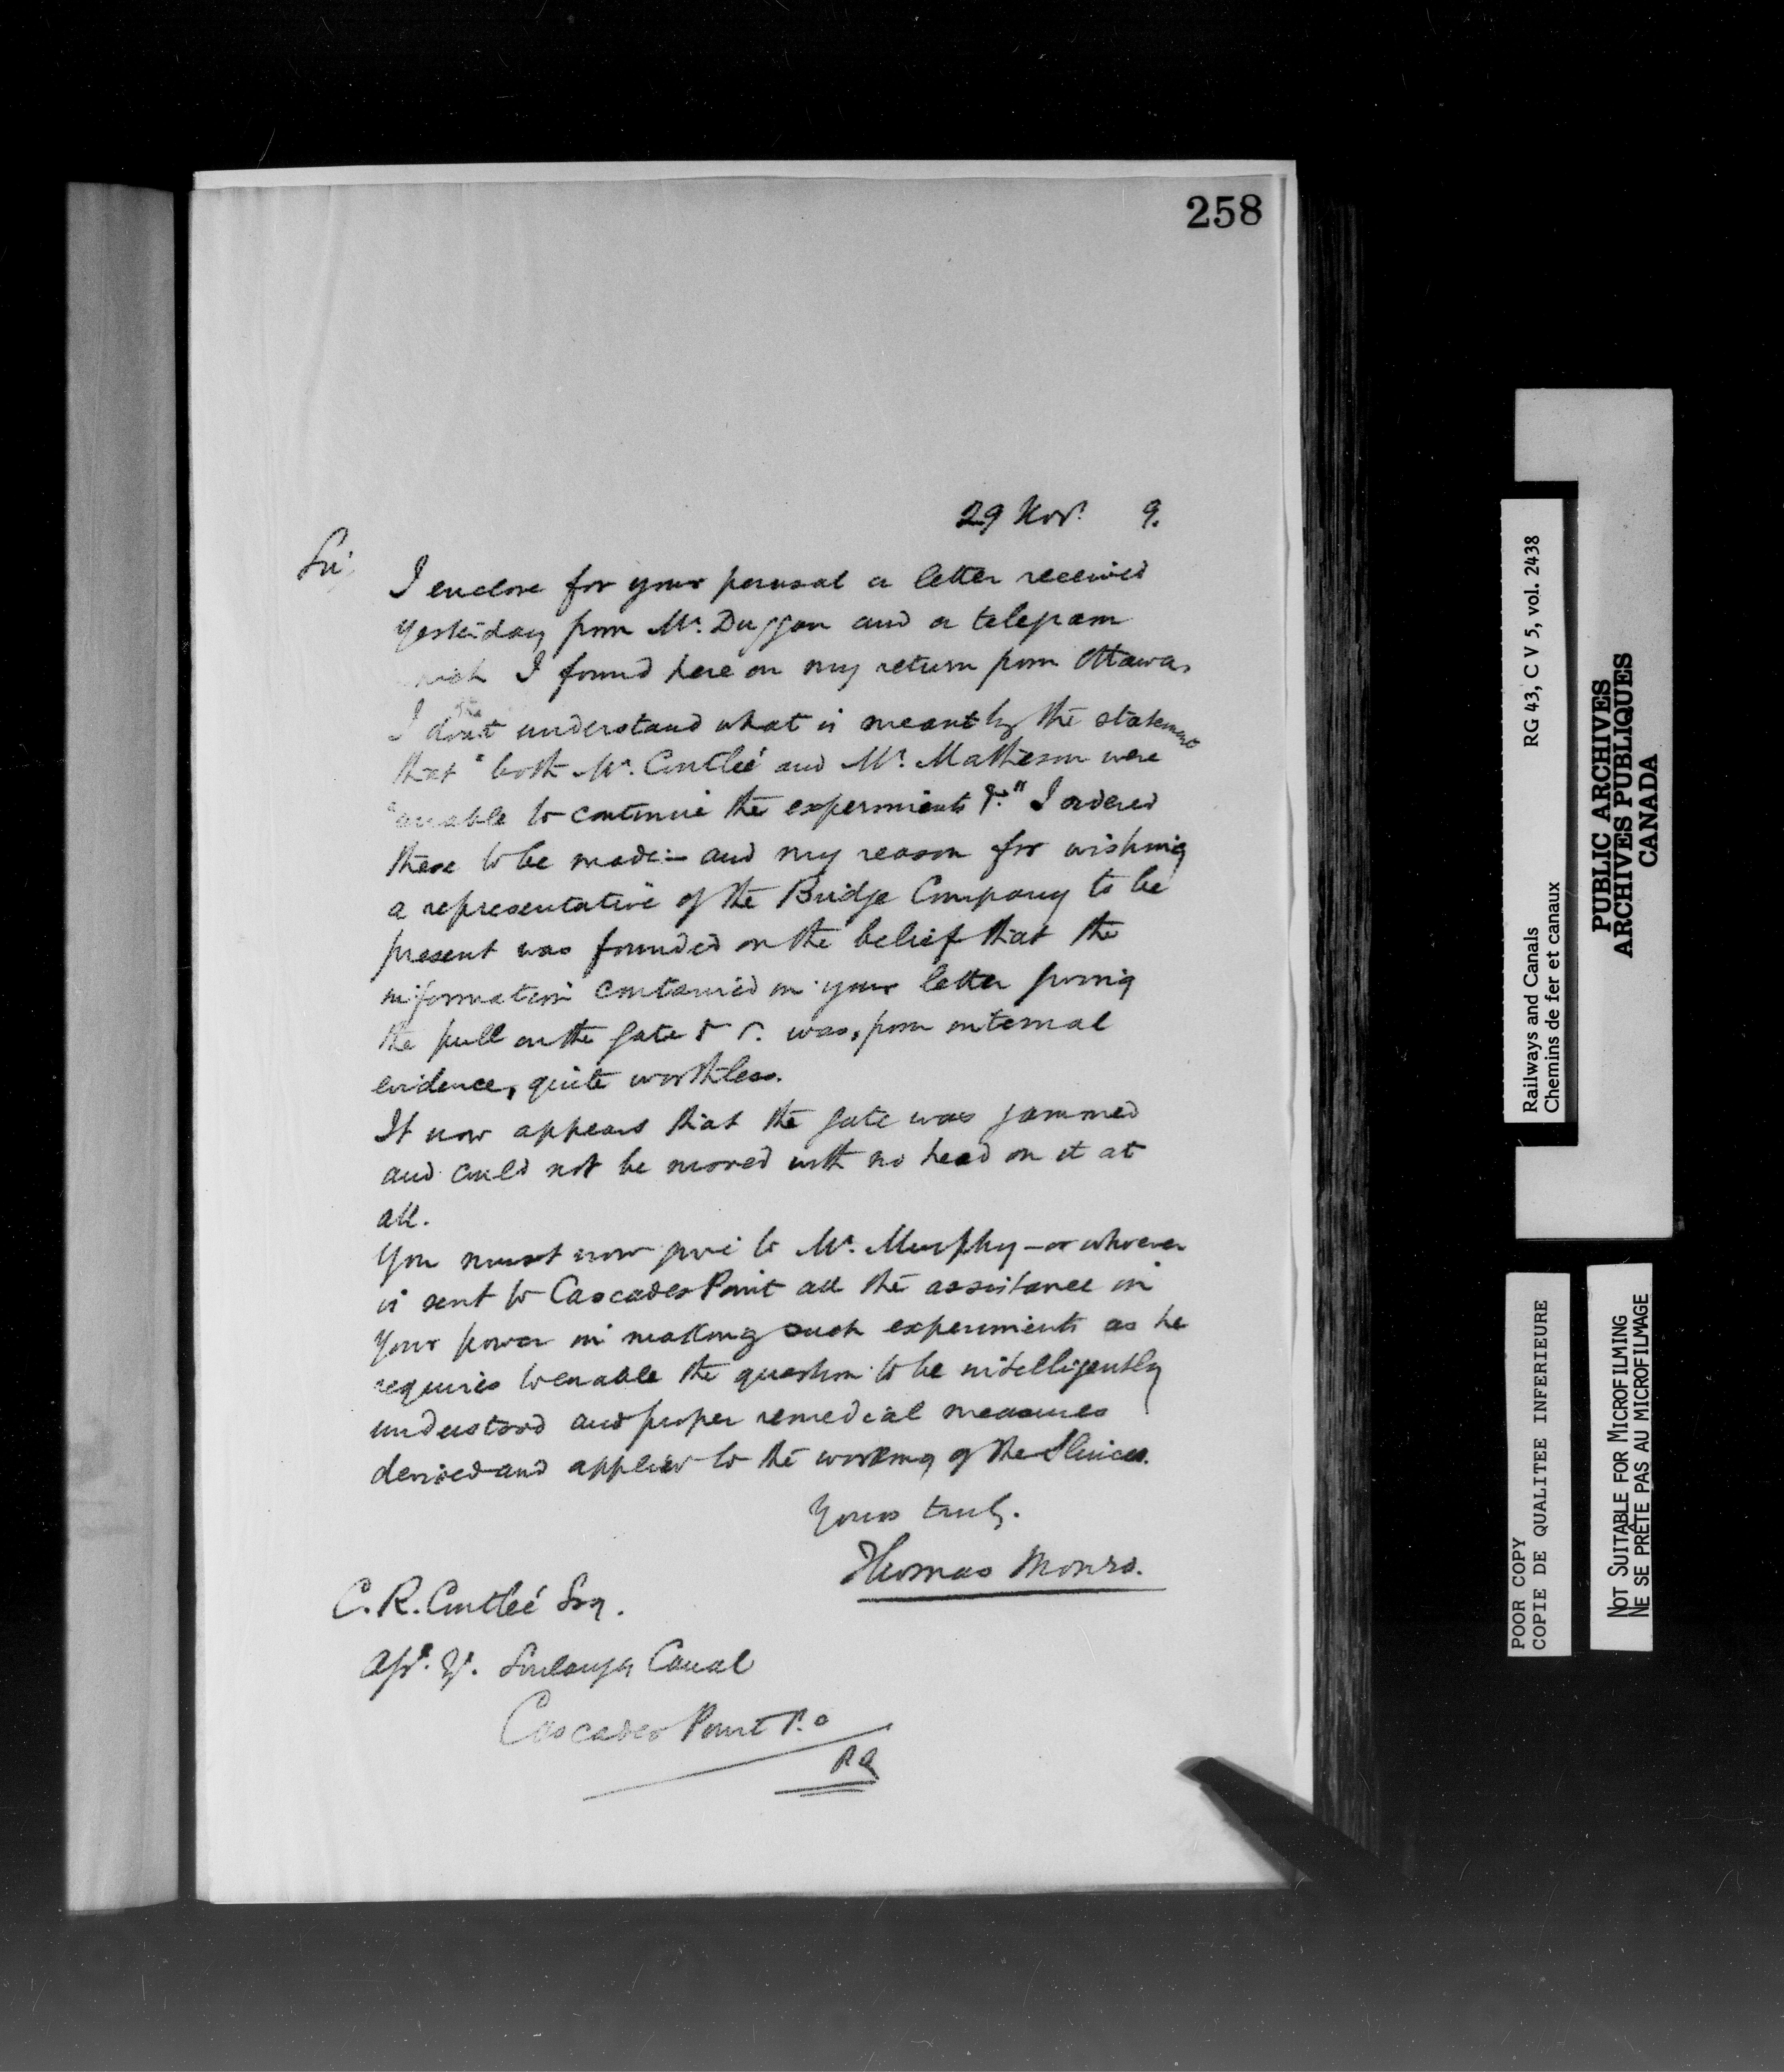 258
29 Nov. 9.
Sir,
I enclose for your perusal a letter received
yesterday from Mr. Duggan and a telegram
which I found here on my return from Ottawa.
I don't understand what is meant by the statement
that "both Mr. Coutleé and Mr. Matheson were
unable to continue the experiments &c." I ordered
these to be made:- and my reason for wishing
a representative of the Bridge Company to be
present was founded on the belief that the
information contained in your letter giving
the pull on the gate & c. was, from internal
evidence, quite worthless.
It now appears that the gate was jammed
and could not be moved with no head on it at
all.
You must now give to Mr. Murphy - or whoever
is sent to Cascades Point all the assistance in
your power in making such experiments as he
requires to enable the question to be intelligently
understood and proper remedial measures
devised and applied to the working of the Sluices.
Yours truly.
Thomas Monro.
C. R. Coutleé Esq.
Soulanges Canal
Cascades Point P.O
P Q
Railways and Canals RG 43, C V 5, vol. 2438
Chemins de fer et canaux
PUBLIC ARCHIVES
ARCHIVES PUBLIQUES
CANADA
POOR COPY
COPIE DE QUALITEE INFERIEURE
NOT SUITABLE FOR MICROFILMING
NE SE PRÊTE PAS AU MICROFILMAGE